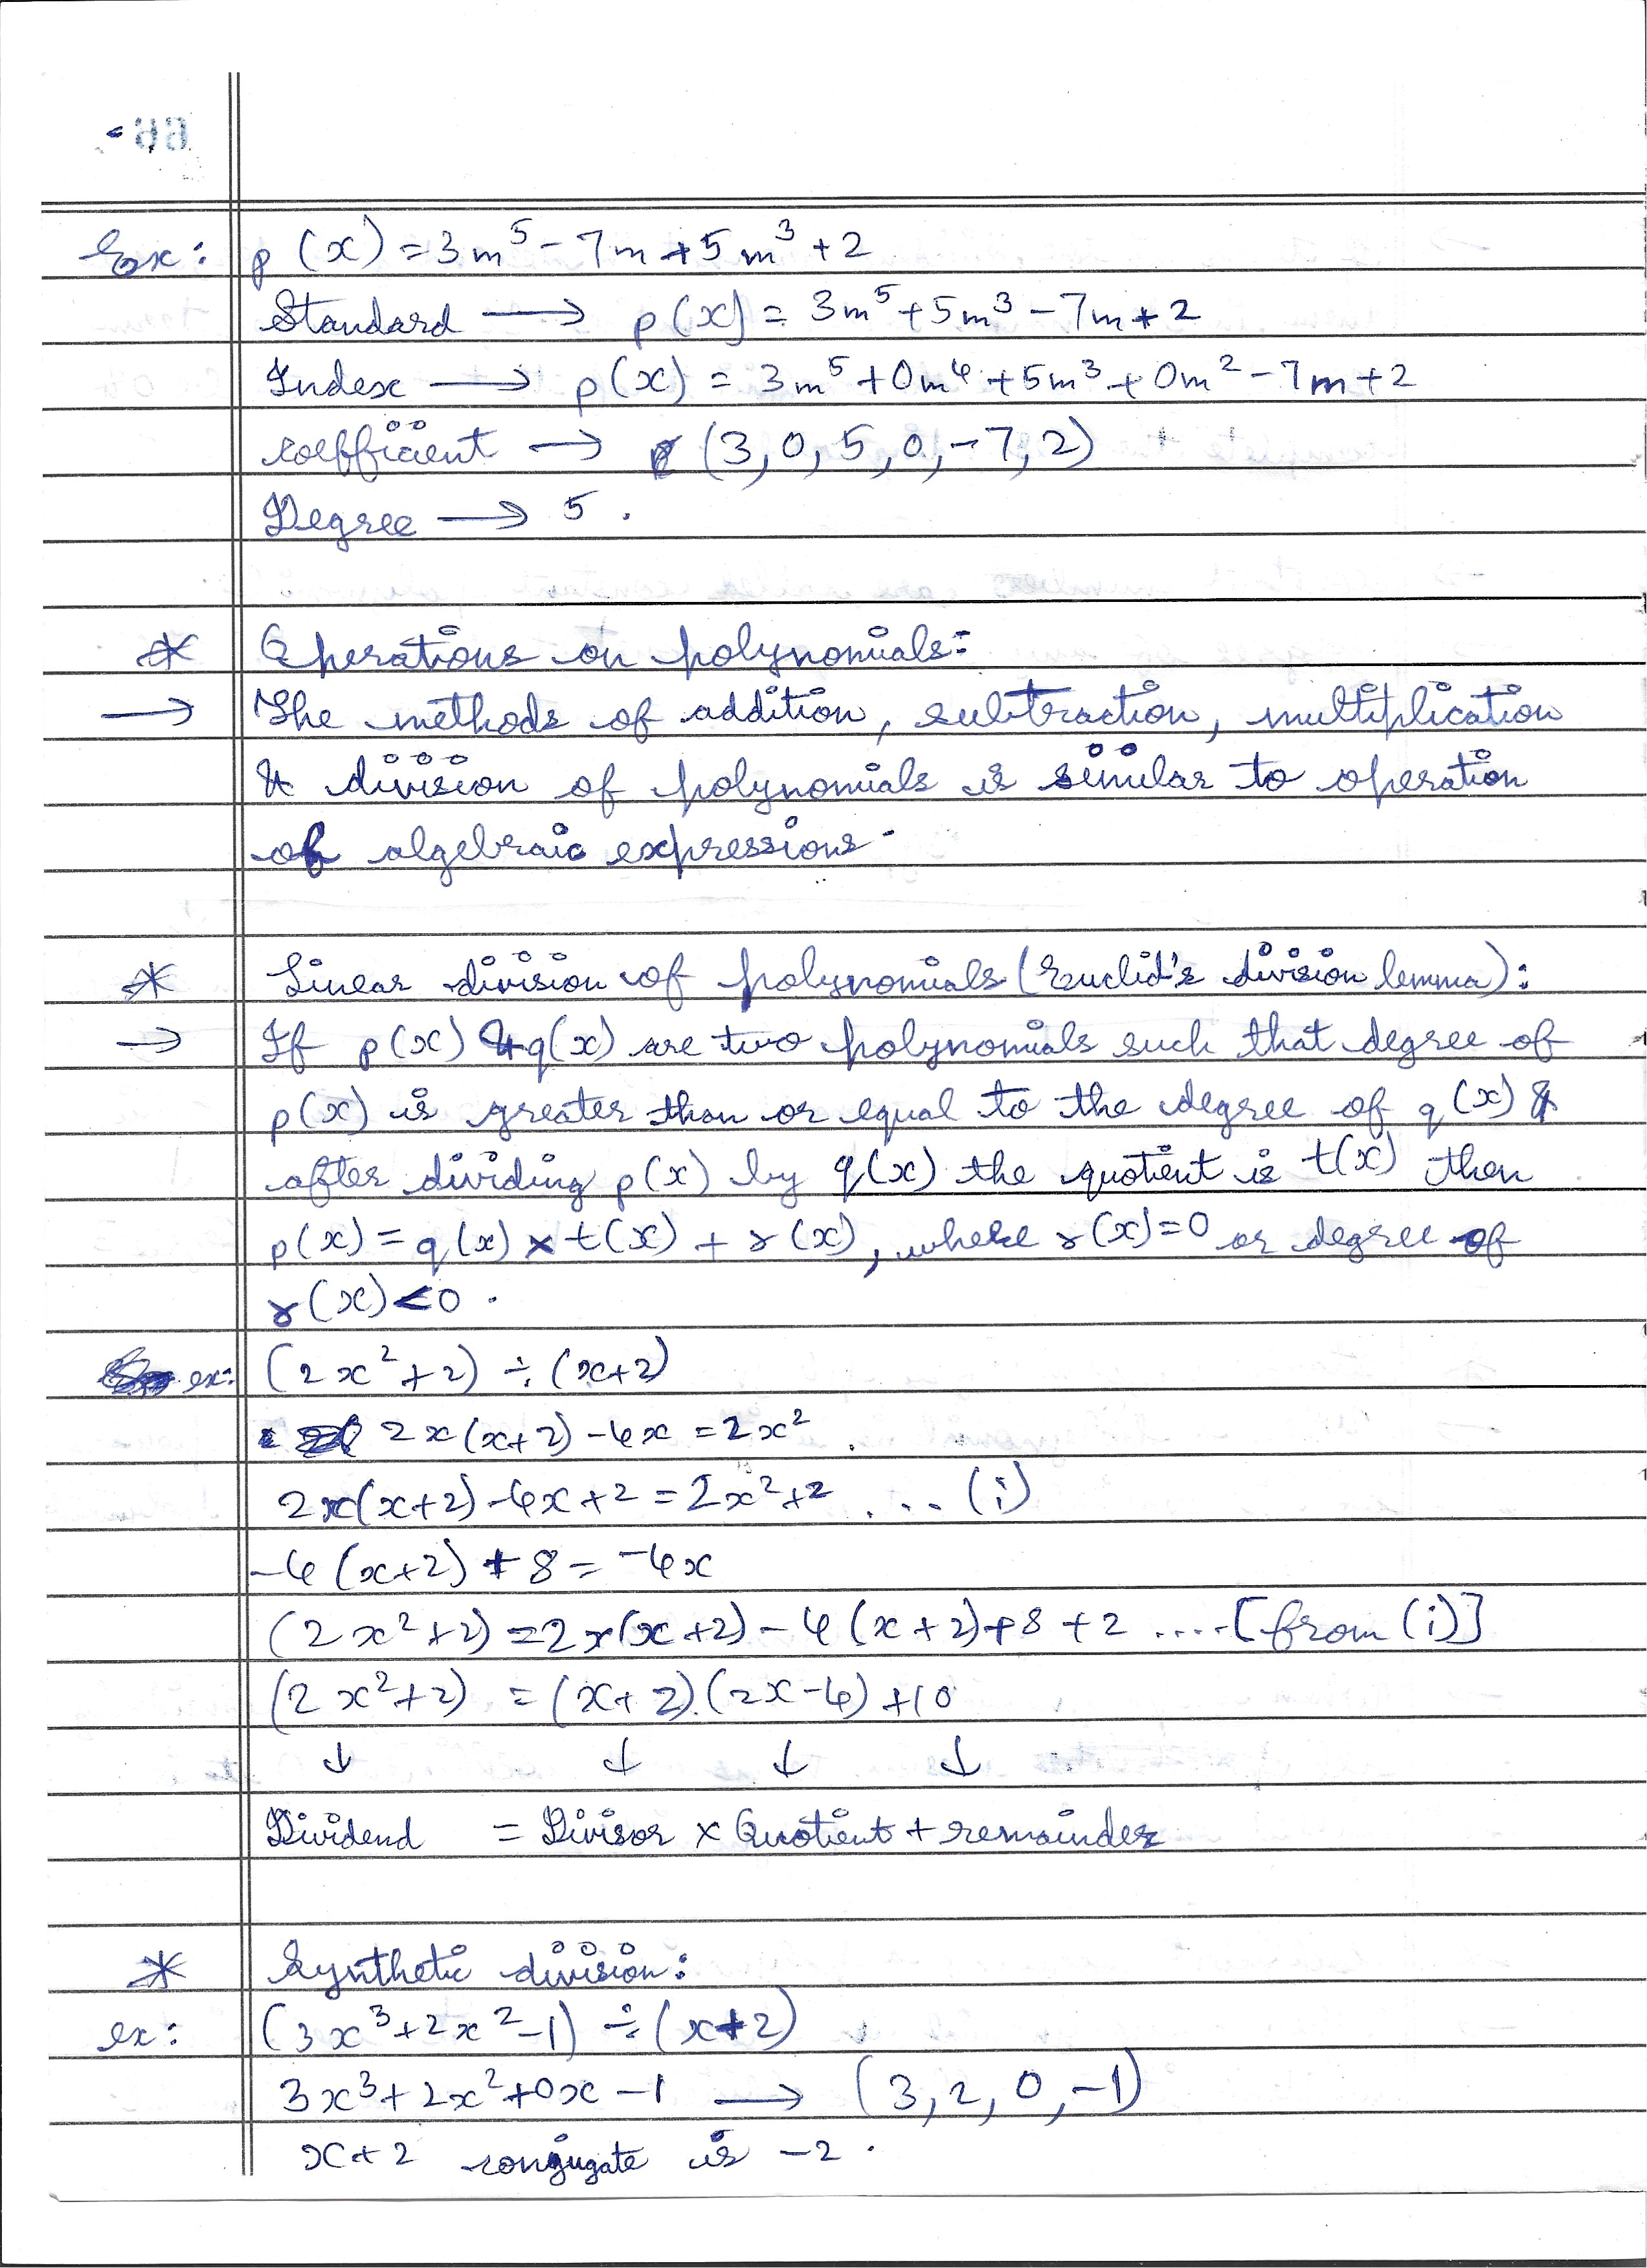 Ex: p(x) = 3m⁵ - 7m + 5m³ + 2
Standard → p(x) = 3m⁵ + 5m³ - 7m + 2
Index → p(x) = 3m⁵ + 0m⁴ + 5m³ + 0m² - 7m + 2
coefficient → (3, 0, 5, 0, -7, 2)
Degree → 5.
* Operations on polynomials:
→ The methods of addition, subtraction, multiplication
& division of polynomials is similar to operation
of algebraic expressions.
* Linear division of polynomials (Euclid's division lemma):
→ If p(x) & q(x) are two polynomials such that degree of
p(x) is greater than or equal to the degree of q(x) &
after dividing p(x) by q(x) the quotient is t(x) then
p(x) = q(x) × t(x) + r(x), where r(x) = 0 or degree of
r(x) < 0.
ex: (2x² + 2) ÷ (x+2)
2x(x+2) - 4x = 2x².
2x(x+2) - 4x + 2 = 2x² + 2 ... (i)
-4(x+2) + 8 = -4x
(2x² + 2) = 2x(x+2) - 4(x+2) + 8 + 2 ....[from (i)]
(2x² + 2) = (x+2).(2x-4) + 10
↓ ↓ ↓ ↓
Dividend = Divisor × Quotient + remainder
* Synthetic division:
ex: (3x³ + 2x² - 1) ÷ (x+2)
3x³ + 2x² + 0x - 1 → (3, 2, 0, -1)
x + 2 conjugate is -2.